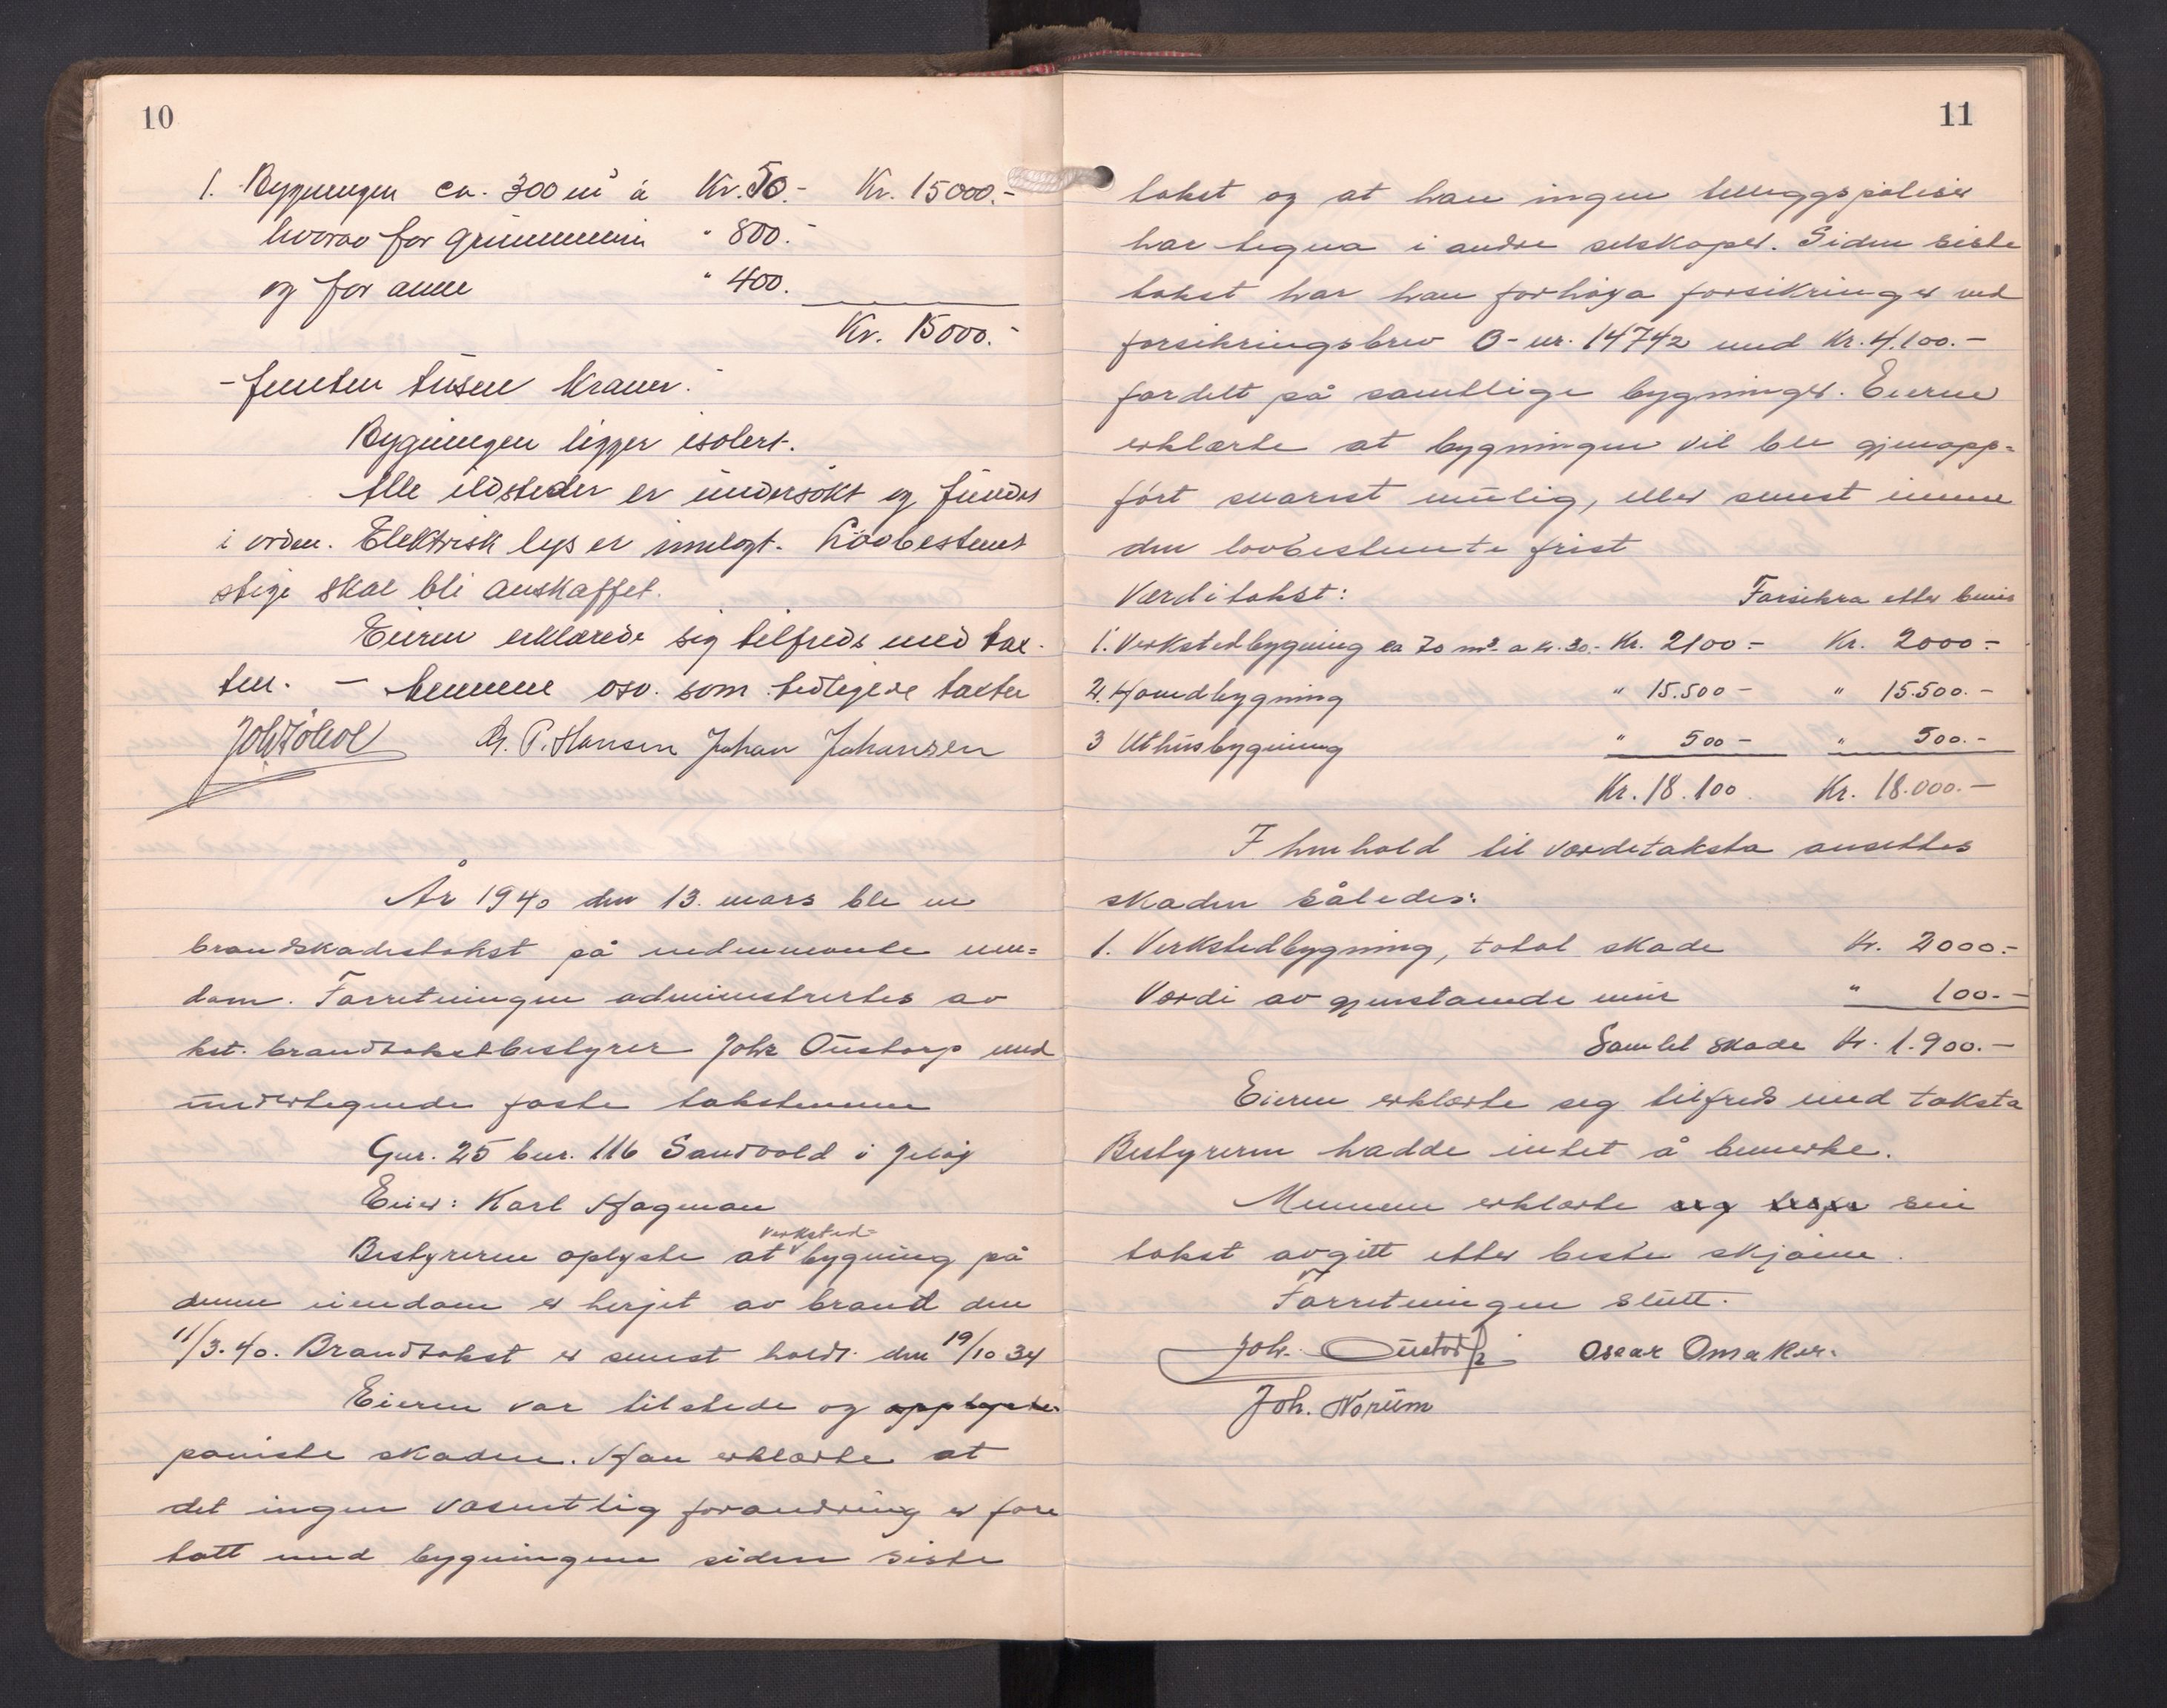 10
1. Bygningen ca. 300 m² à Kr. 50.- Kr. 15000.-
hvorav for grunnmuren " 800.-
og for annu " 400.
Kr. 15000.-
- femten tusen kroner.-
Bygningen ligger isolert.
Alle ildsteder er undersøkt og fundet
i orden. Elektrisk lys er innlagt. Lovbestemt
stige skal bli anskaffet.
Eieren erklærede sig tilfreds med tax-
ten. - mennene osv. som tidligere taxter
Chr. P. Hansen Johan Johansen
År 1940 den 13. mars ble en
brandskadetakst på nedennevnte eien=
dom. Forretningen administrertes av
kst. brandtakstbestyrer Johs Oustorp med
undertegnede faste takstmenn
Gnr. 25 bnr. 116 Sandvold i Jeløy
Eier: Karl Hagman
verksted-
Bestyreren oplyste at bygning på
denne eiendom er herjet av brand den
11/3-40. Brandtakst er senest holdt den 19/10 34
Eieren var tilstede og opplyste
påviste skaden. Han erklærte at
det ingen vesentlig forandring er fore
tatt med bygningene siden siste
11
takst og at han ingen tilleggspoliser
har tegna i andre selskaper. Siden siste
takst har han forhøya forsikringer ved
forsikringsbrev B-nr. 14742 med Kr. 4.100.-
fordelt på samtlige bygninger. Eieren
erklærte at bygningen vil bli gjenopp=
ført snarest mulig, eller senest innen
den lovbestemte frist
Verditakst: Forsikra etter bevis
1. Verkstedbygning ca 70 m² a kr. 30.- Kr. 2100.- Kr. 2000.-
2. Hovedbygning " 15.500- " 15.500.-
3 Uthusbygning " 500- " 500.-
Kr. 18.100. Kr. 18.000.-
I henhold til verditaksta ansettes
skaden således:
1. Verkstedbygning, total skade Kr. 2000.-
Verdi av gjenstående mur " 100.-
Samlet skade Kr. 1.900.-
Eieren erklærte seg tilfreds med taksta
Bestyreren hadde intet å bemerke.
Mennene erklærte seg sin
takst avgitt etter beste skjønn.
Forretningen slutt.
Joh. Oustorp Oscar Omaker.
Joh. Norum